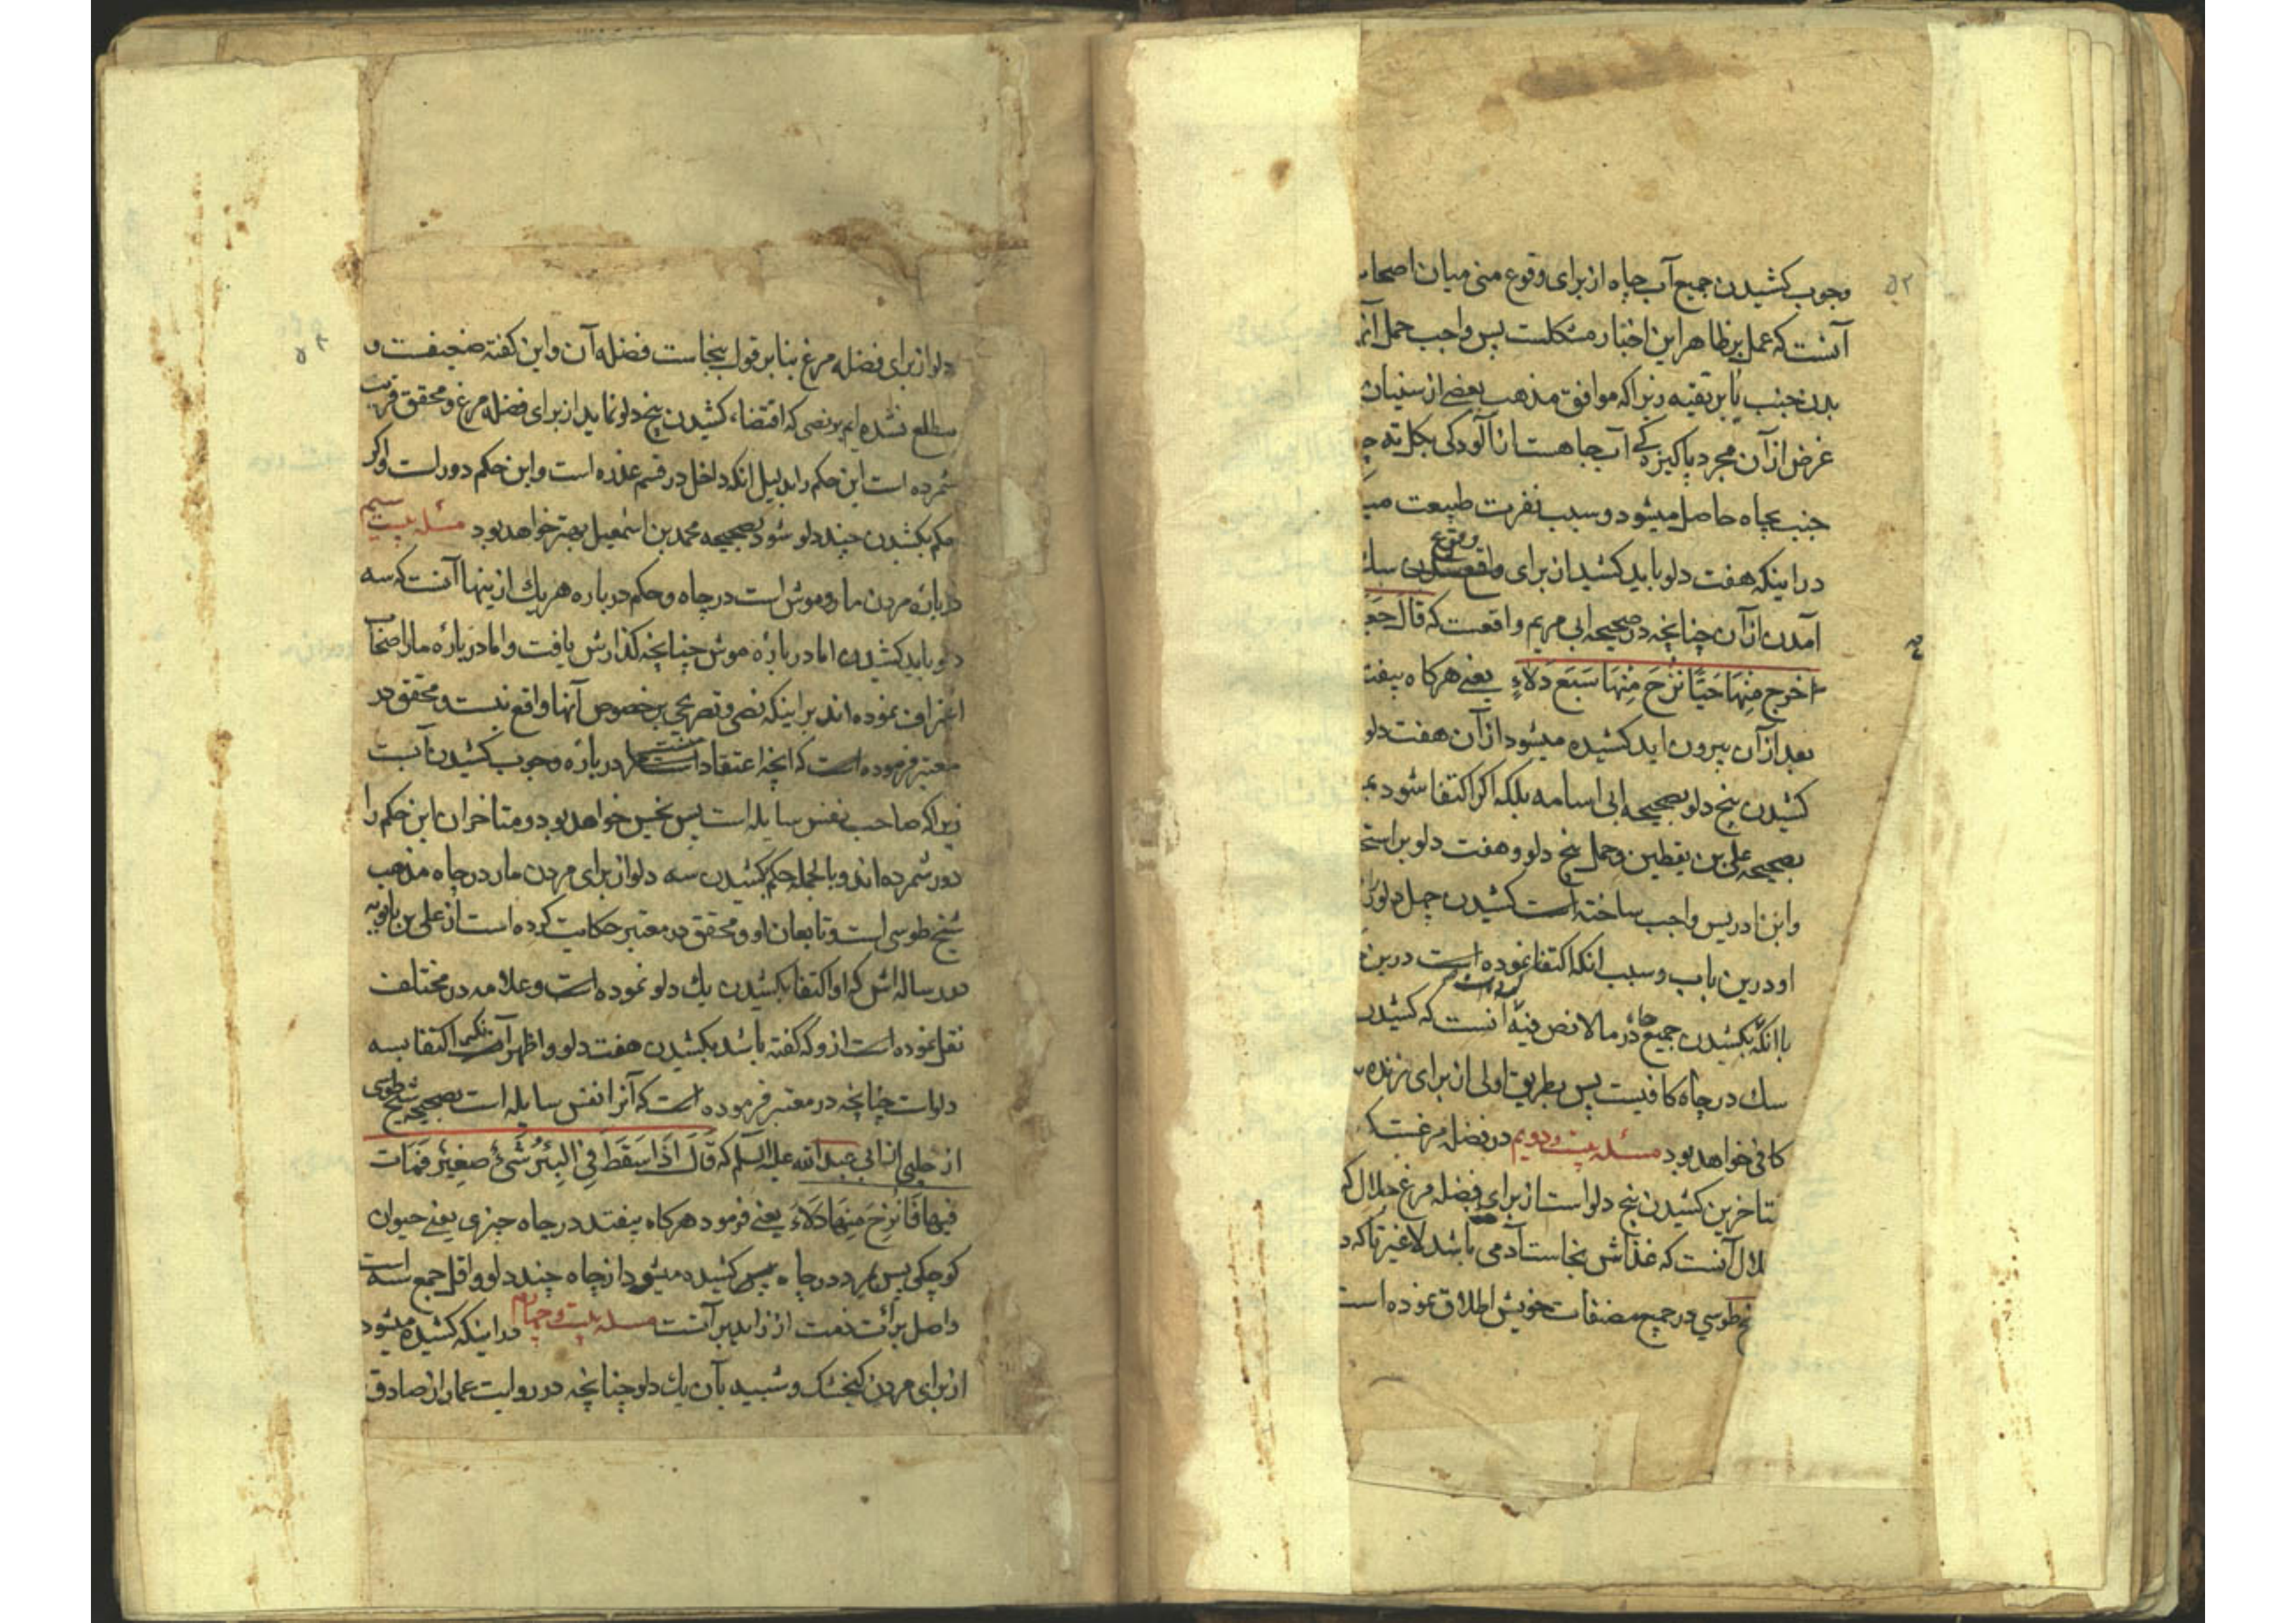 وجوب کشیدن جمیع آب چاه از برای وقوع منی میان اصحاب
آنست که عمل بر ظاهر این اخبار مشکلست پس واجب حمل آنر
بدن جنب یا بر تقیه زیرا که موافق مذهب بعضی از سنیان
غرض از آن مجرد پاکیزه کی آب چاهست از آلودکی بکل ته چ
جنب بچاه حاصل میشود و سبب نفرت طبیعت می
در اینکه هفت دلو باید کشید از برای وقوع سك
آمدن از آن چنانچه در صحیحه ابی مریم واقعست که قال جع
اخرج منها حیّا نزح منها سبع دلاء یعنی هرکاه بیفت
بعد از آن بیرون اید کشیده میشود از آن هفت دلو
کشیدن پنج دلو بصحیحه ابی اسامه بلکه اکر اکتفا شود
بصحیحه علی بن یقطین و حمل پنج دلو و هفت دلو بر استح
وابن ادریس واجب ساخته است کشیدن چهل دلو
او درین باب وسبب انکه اکتفا نموده است درین
با انکه بکشیدن جمیع ماء در ما لا نص فیه انست که کشیدن
سك در چاه کافیست پس بطریق اولی از برای زنده
کافی خواهد بود مسئله بیست ودویم در فضله مرغست
متاخرین کشیدن پنج دلو است از برای فضله مرغ جلال که
لال آنست که غذاش نجاست آدمی باشد لا غیر تا که د
خ طوسی در جمیع مصنفات خویش اطلاق نموده است
دلو از برای فضله مرغ بنا بر قول بنجاست فضله آن واین کفته ضعیفست و
مطلع نشده ایم بر نصی که اقتضاء کشیدن پنج دلو نماید از برای فضله مرغ و محقق قریب
شمرده است این حکم را بدلیل انکه داخل در قسم عذره است واین حکم دور است واکر
حکم بکشدن چند دلو شود بصحیحه محمد بن اسمعیل بهتر خواهد بود مسئله بیست سیم
در باره مردن مار و موش است در چاه و حکم درباره هر یك از ینها آنست که سه
دلو باید کشیدن اما در باره موش چنانچه کذارش یافت و اما در باره مار اصحاب
اعتراف نموده اند بر اینکه نص و تصریحی بر خصوص آنها واقع نیست و محقق در
معتبر فرموده است که انچه اعتقاد منست درباره وجوب کشیدن آبست
زیرا که صاحب نفس سایله است پس نجس خواهد بود و متاخران این حکم را
دور شمرده اند و بالجمله حکم کشیدن سه دلو از برای مردن مار در چاه مذهب
شیخ طوسی است و تابعان او و محقق در معتبر حکایت کرده است از علی بن بابویه
در رساله اش که او اکتفا بکشیدن یك دلو نموده است و علامه در مختلف
نقل نموده است از و که کفته باشد بکشیدن هفت دلو و اظهر اکتفا بسه
دلو است چنانچه در معتبر فرموده است که آنرا نفس سایله است بصحیحه شیخ طوسی
از حلبی از ابی عبد الله علیه السلم که قال اذا سقط فی البئر شیء صغیر فمات
فیها فانزح منها دلاء یعنی فرمود هرکاه بیفتد در چاه چیزی یعنی حیوان
کوچکی پس بمیرد در چاه پس کشیده میشود از چاه چند دلو و اقل جمع سه است
واصل برائت ذمت از زاید بر آنست مسئله بیست و چهارم در اینکه کشیده میشود
از برای مردن کنجشک و شبیه بآن یك دلو چنانچه در روایت عمار از صادق